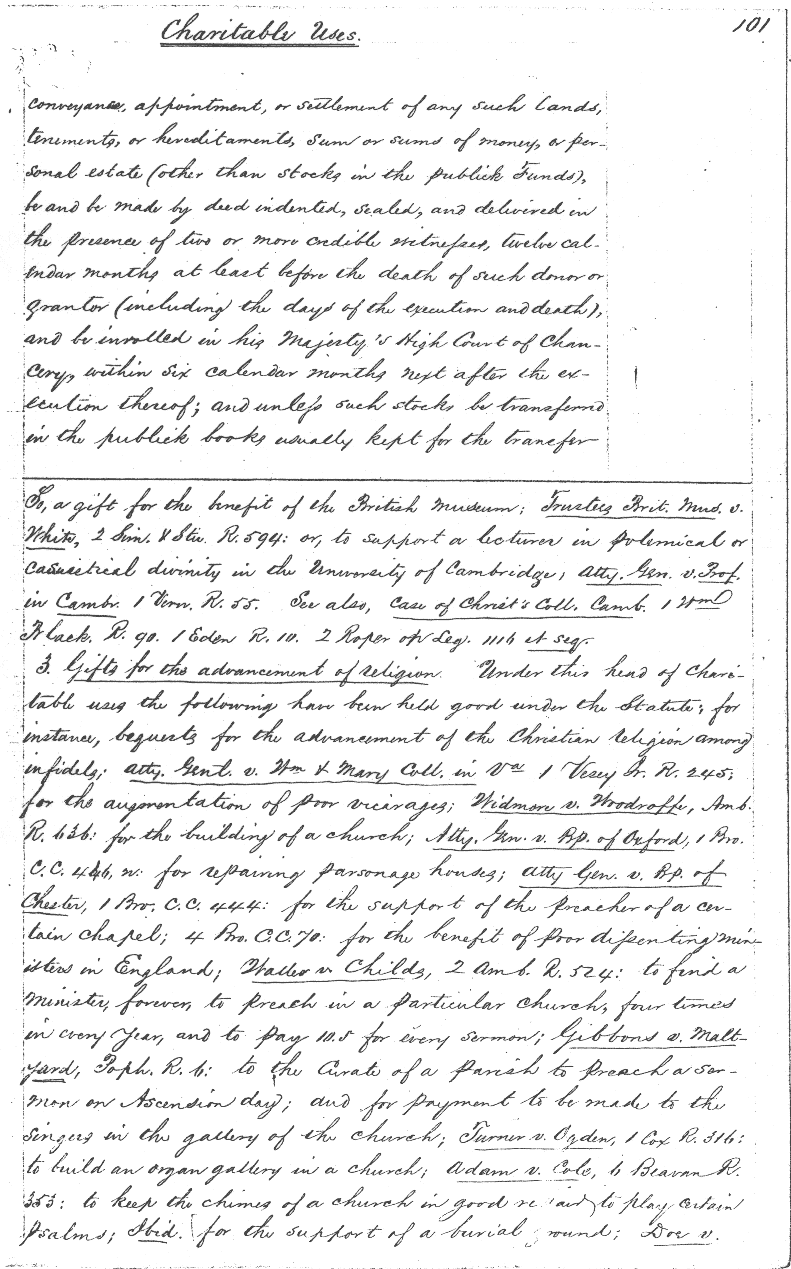 Charitable Uses.
101
conveyance, appointment, or settlement of any such lands,
tenements, or hereditaments, sum or sums of money, or per-
sonal estate (other than stocks in the publick Funds),
be and be made by deed indented, sealed, and delivered in
the presence of two or more credible witnesses, twelve cal-
endar months at least before the death of such donor or
grantor (including the days of the execution and death),
and be inrolled in his Majesty's High Court of Chan-
cery, within six calendar months next after the ex-
ecution thereof; and unless such stocks be transferred
in the publick books usually kept for the transfer
So, a gift for the benefit of the British Museum; Trustees Brit. Mus. v.
White, 2 Sim. & Stu. R. 594: or, to support a lecturer in polemical or
casuistical divinity in the University of Cambridge; Atty. Gen. v. Prof.
in Cambr. 1 Vern. R. 55. See also, Case of Christ's Coll. Camb. 1 Wm
Black. R. 90. 1 Eden R. 10. 2 Roper on Leg. 1116 et seq.
3. Gifts for the advancement of religion. Under this head of chari-
table uses the following have been held good under the Statute; for
instance, bequests for the advancement of the Christian religion among
infidels; Atty. Genl. v. Wm & Mary Coll. in Va 1 Vesey Jr. R. 245;
for the augmentation of poor vicarages; Widmore v. Woodroffe, Amb.
R. 636: for the building of a church; Atty. Gen. v. Bp. of Oxford, 1 Bro.
C.C. 446, n: for repairing parsonage houses; Atty Gen. v. Bp. of
Chester, 1 Bro. C.C. 444: for the support of the preacher of a cer-
tain chapel; 4 Bro. C.C. 70: for the benefit of poor dissenting min-
isters in England; Waller v. Childs, 2 Amb. R. 524: to find a
minister, forever, to preach in a particular church, four times
in every year, and to pay 10.s for every sermon; Gibbons v. Malt-
yard, Poph. R. 6: to the Curate of a parish to preach a ser-
mon on Ascension day; and for payment to be made to the
singers in the gallery of the church; Turner v. Ogden, 1 Cox R. 316:
to build an organ gallery in a church; Adam v. Cole, 6 Beavan R.
353: to keep the chimes of a church in good to play certain
psalms; Ibid. for the support of a burial ground; Doe v.